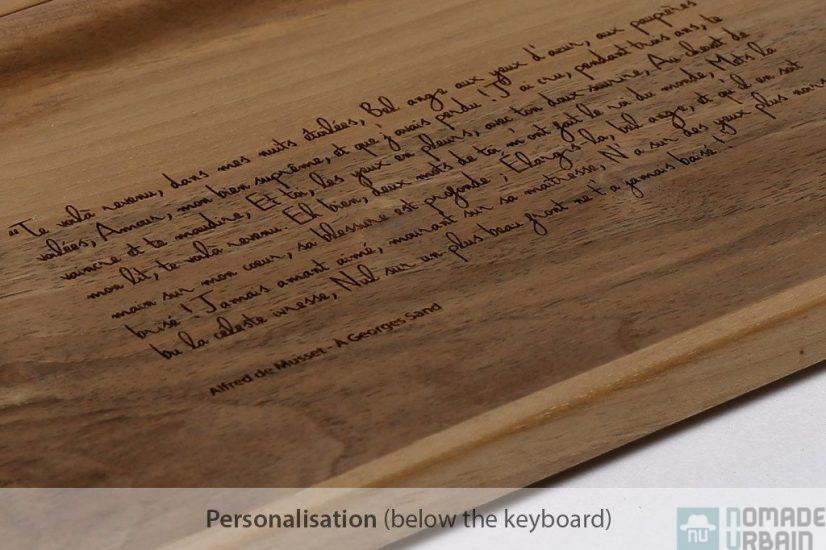 "Te voilà revenu, dans mes nuits étoilées, Bel ange aux yeux d'azur, aux paupières
voilées, Amour, mon bien suprême, et que j'avais perdu ! J'ai cru, pendant trois ans, te
vaincre et te maudire, Et toi, les yeux en pleurs, avec ton doux sourire, Au chevet de
mon lit, te voilà revenu. Eh bien, deux mots de toi m'ont fait le roi du monde, Mets la
main sur mon cœur, sa blessure est profonde ; Élargis-la, bel ange, et qu'il en soit
brisé ! Jamais amant aimé, mourant sur sa maîtresse, N'a sur des yeux plus noirs
bu la céleste ivresse, Nul sur un plus beau front ne t'a jamais baisé !
Alfred de Musset - A Georges Sand
Personalisation (below the keyboard)
NU
NOMADE
URBAIN